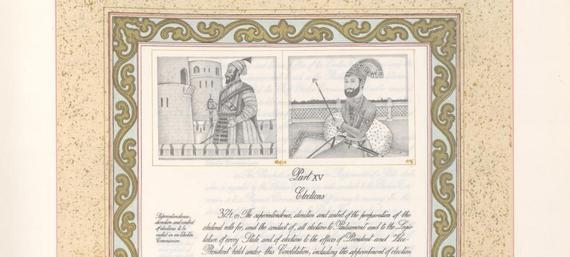 Part XV
Elections
Superintendence,
direction and control
of elections to be
vested in an Election
Commission.
324. (1) The superintendence, direction and control of the preparation of the
electoral rolls for, and the conduct of, all elections to Parliament and to the Legis-
lature of every State and of elections to the offices of President and Vice-
President held under this Constitution, including the appointment of election